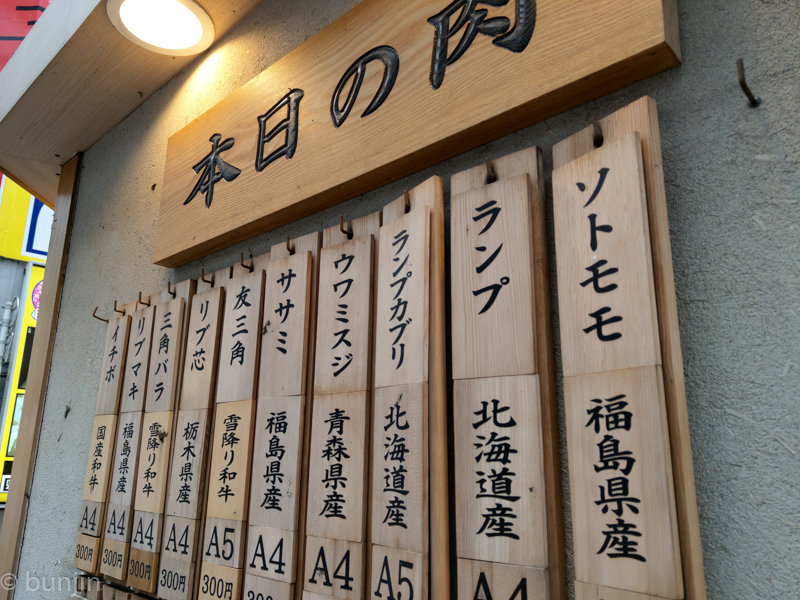 本日の肉
ソトモモ
福島県産
ランプ
北海道産
A4
ランプカブリ
北海道産
A5
ウワミスジ
青森県産
A4
ササミ
福島県産
A4
300
友三角
雪降り和牛
A5
300円
リブ芯
栃木県産
A4
300円
三角バラ
雪降り和牛
A4
300円
リブマキ
福島県産
A4
300円
イチボ
国産和牛
A4
300円
© bunjin